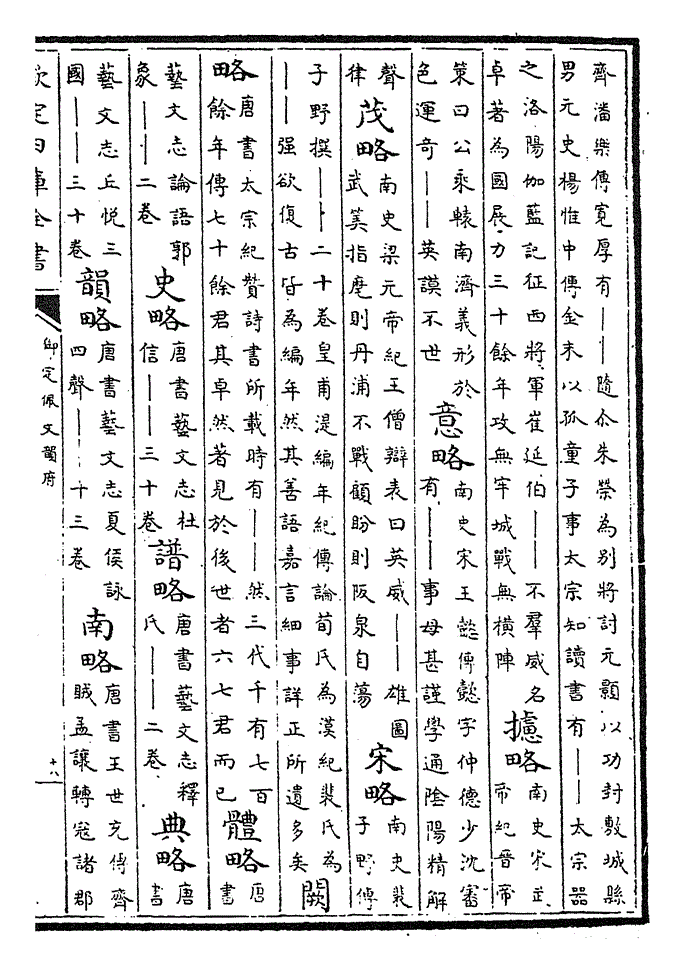 齊潘樂傳寬厚有——隨尒朱榮為別將討元顥以功封敷城縣
男元史楊惟中傳金末以孤童子事太宗知讀書有——太宗器
之洛陽伽藍記征西將軍崔延伯——不羣威名
卓著為國展力三十餘年攻無牢城戰無橫陣
攄略
南史宋武
帝紀晉帝
策曰公乘轅南濟義形於
色運奇——英謨不世
意略
南史宋王懿傳懿字仲德少沈審
有——事母甚謹學通陰陽精解
聲
律
茂略
南史梁元帝紀王僧辯表曰英威——雄圖
武筭指麾則丹浦不戰顧盼則阪泉自蕩
宋略
南史裴
子野傳
子野撰——二十卷皇甫湜編年紀傳論荀氏為漢紀裴氏為
——强欲復古皆為編年然其善語嘉言細事詳正所遺多矣
闕
略
唐書太宗紀贊詩書所載時有——然三代千有七百
餘年傳七十餘君其卓然著見於後世者六七君而已
體略
唐
書
藝文志論語郭
象——二卷
史略
唐書藝文志杜
信——三十卷
譜略
唐書藝文志釋
氏——二卷
典略
唐
書
藝文志丘悦三
國——三十卷
韻略
唐書藝文志夏侯詠
四聲——十三卷
南略
唐書王世充傳齊
賊孟讓轉寇諸郡
欽定四庫全書
御定佩文韻府
十八